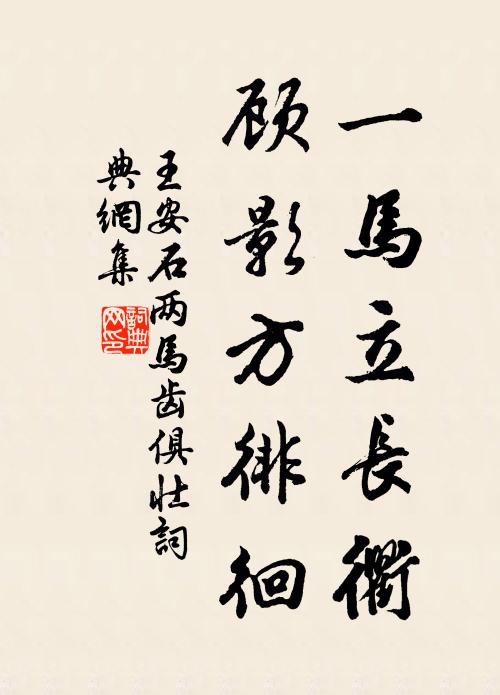 一馬立長衢
顾影方徘徊
王安石两馬齿俱壮詞
典網集
詞典网印